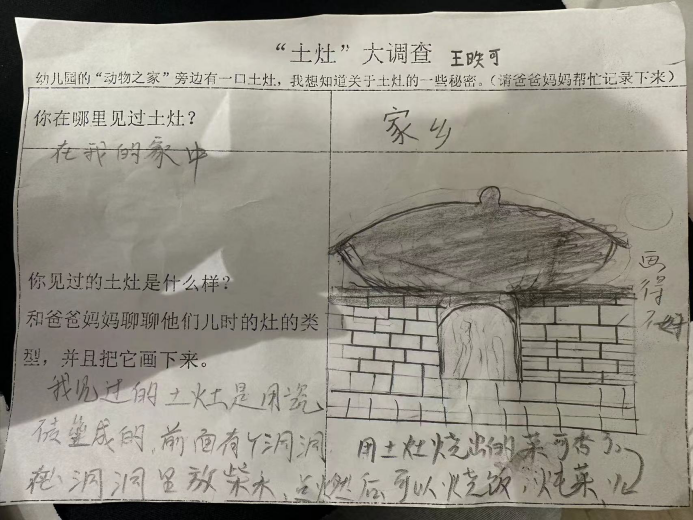 “土灶”大调查 王昳可
幼儿园的“动物之家”旁边有一口土灶，我想知道关于土灶的一些秘密。（请爸爸妈妈帮忙记录下来）
你在哪里见过土灶？
在我的家中
家乡
你见过的土灶是什么样？
和爸爸妈妈聊聊他们儿时的灶的类
型，并且把它画下来。
我见过的土灶是用瓷
砖垒成的，前面有个洞洞
在洞洞里放柴火，点燃后可以烧饭，炖菜
用土灶烧出的菜可香了
画得不好